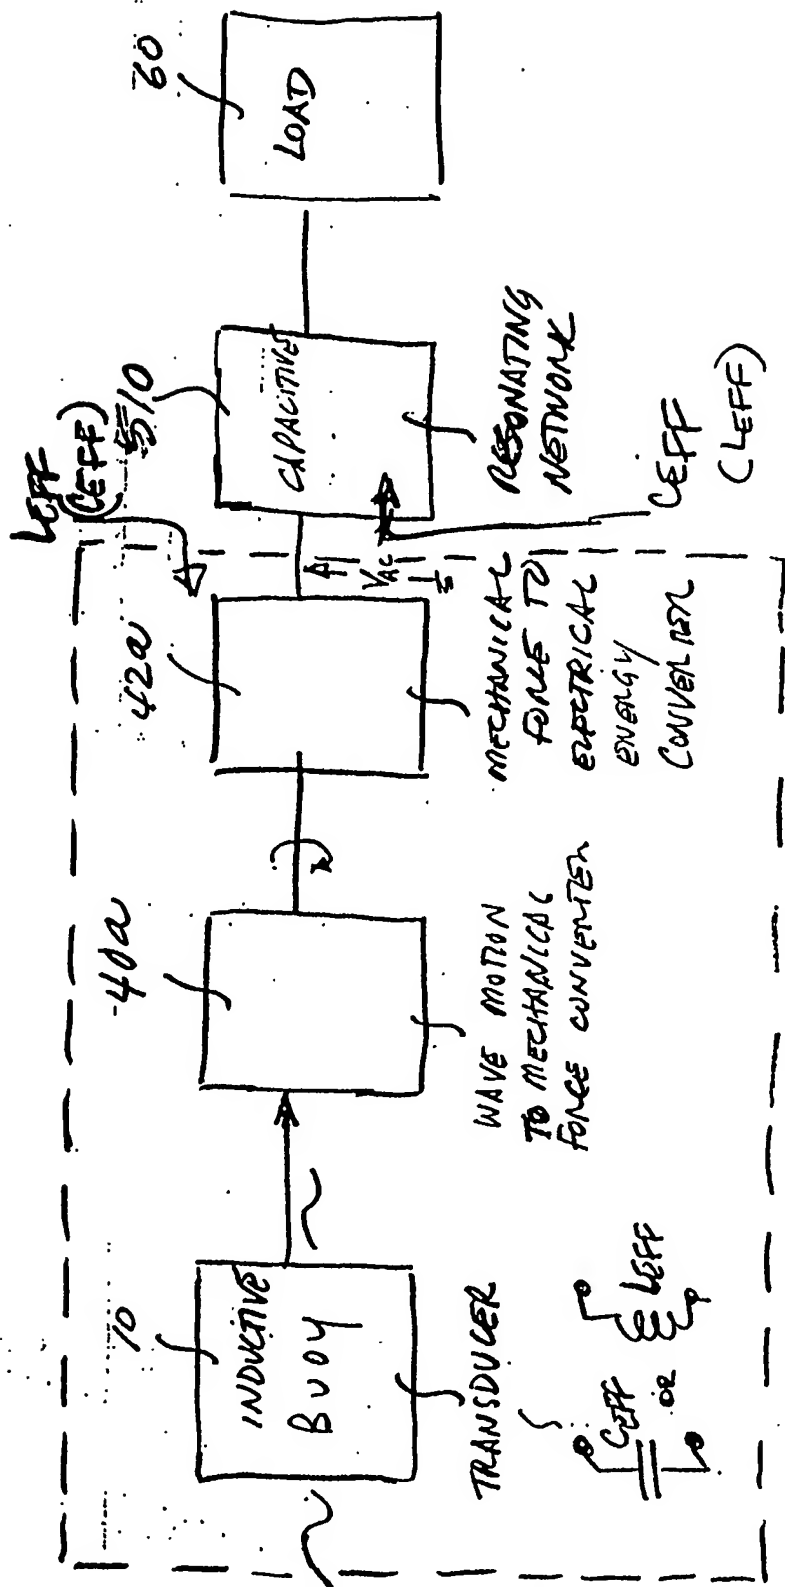 10
INDUCTIVE
BUOY
TRANSDUCER
CEFF
OR
LEFF
40a
WAVE MOTION
TO MECHANICAL
FORCE CONVERTER
42a
MECHANICAL
FORCE TO
ELECTRICAL
ENERGY
CONVERTER
VAC
LEFF
(CEFF)
510
CAPACITIVE
RESONATING
NETWORK
CEFF
(LEFF)
60
LOAD